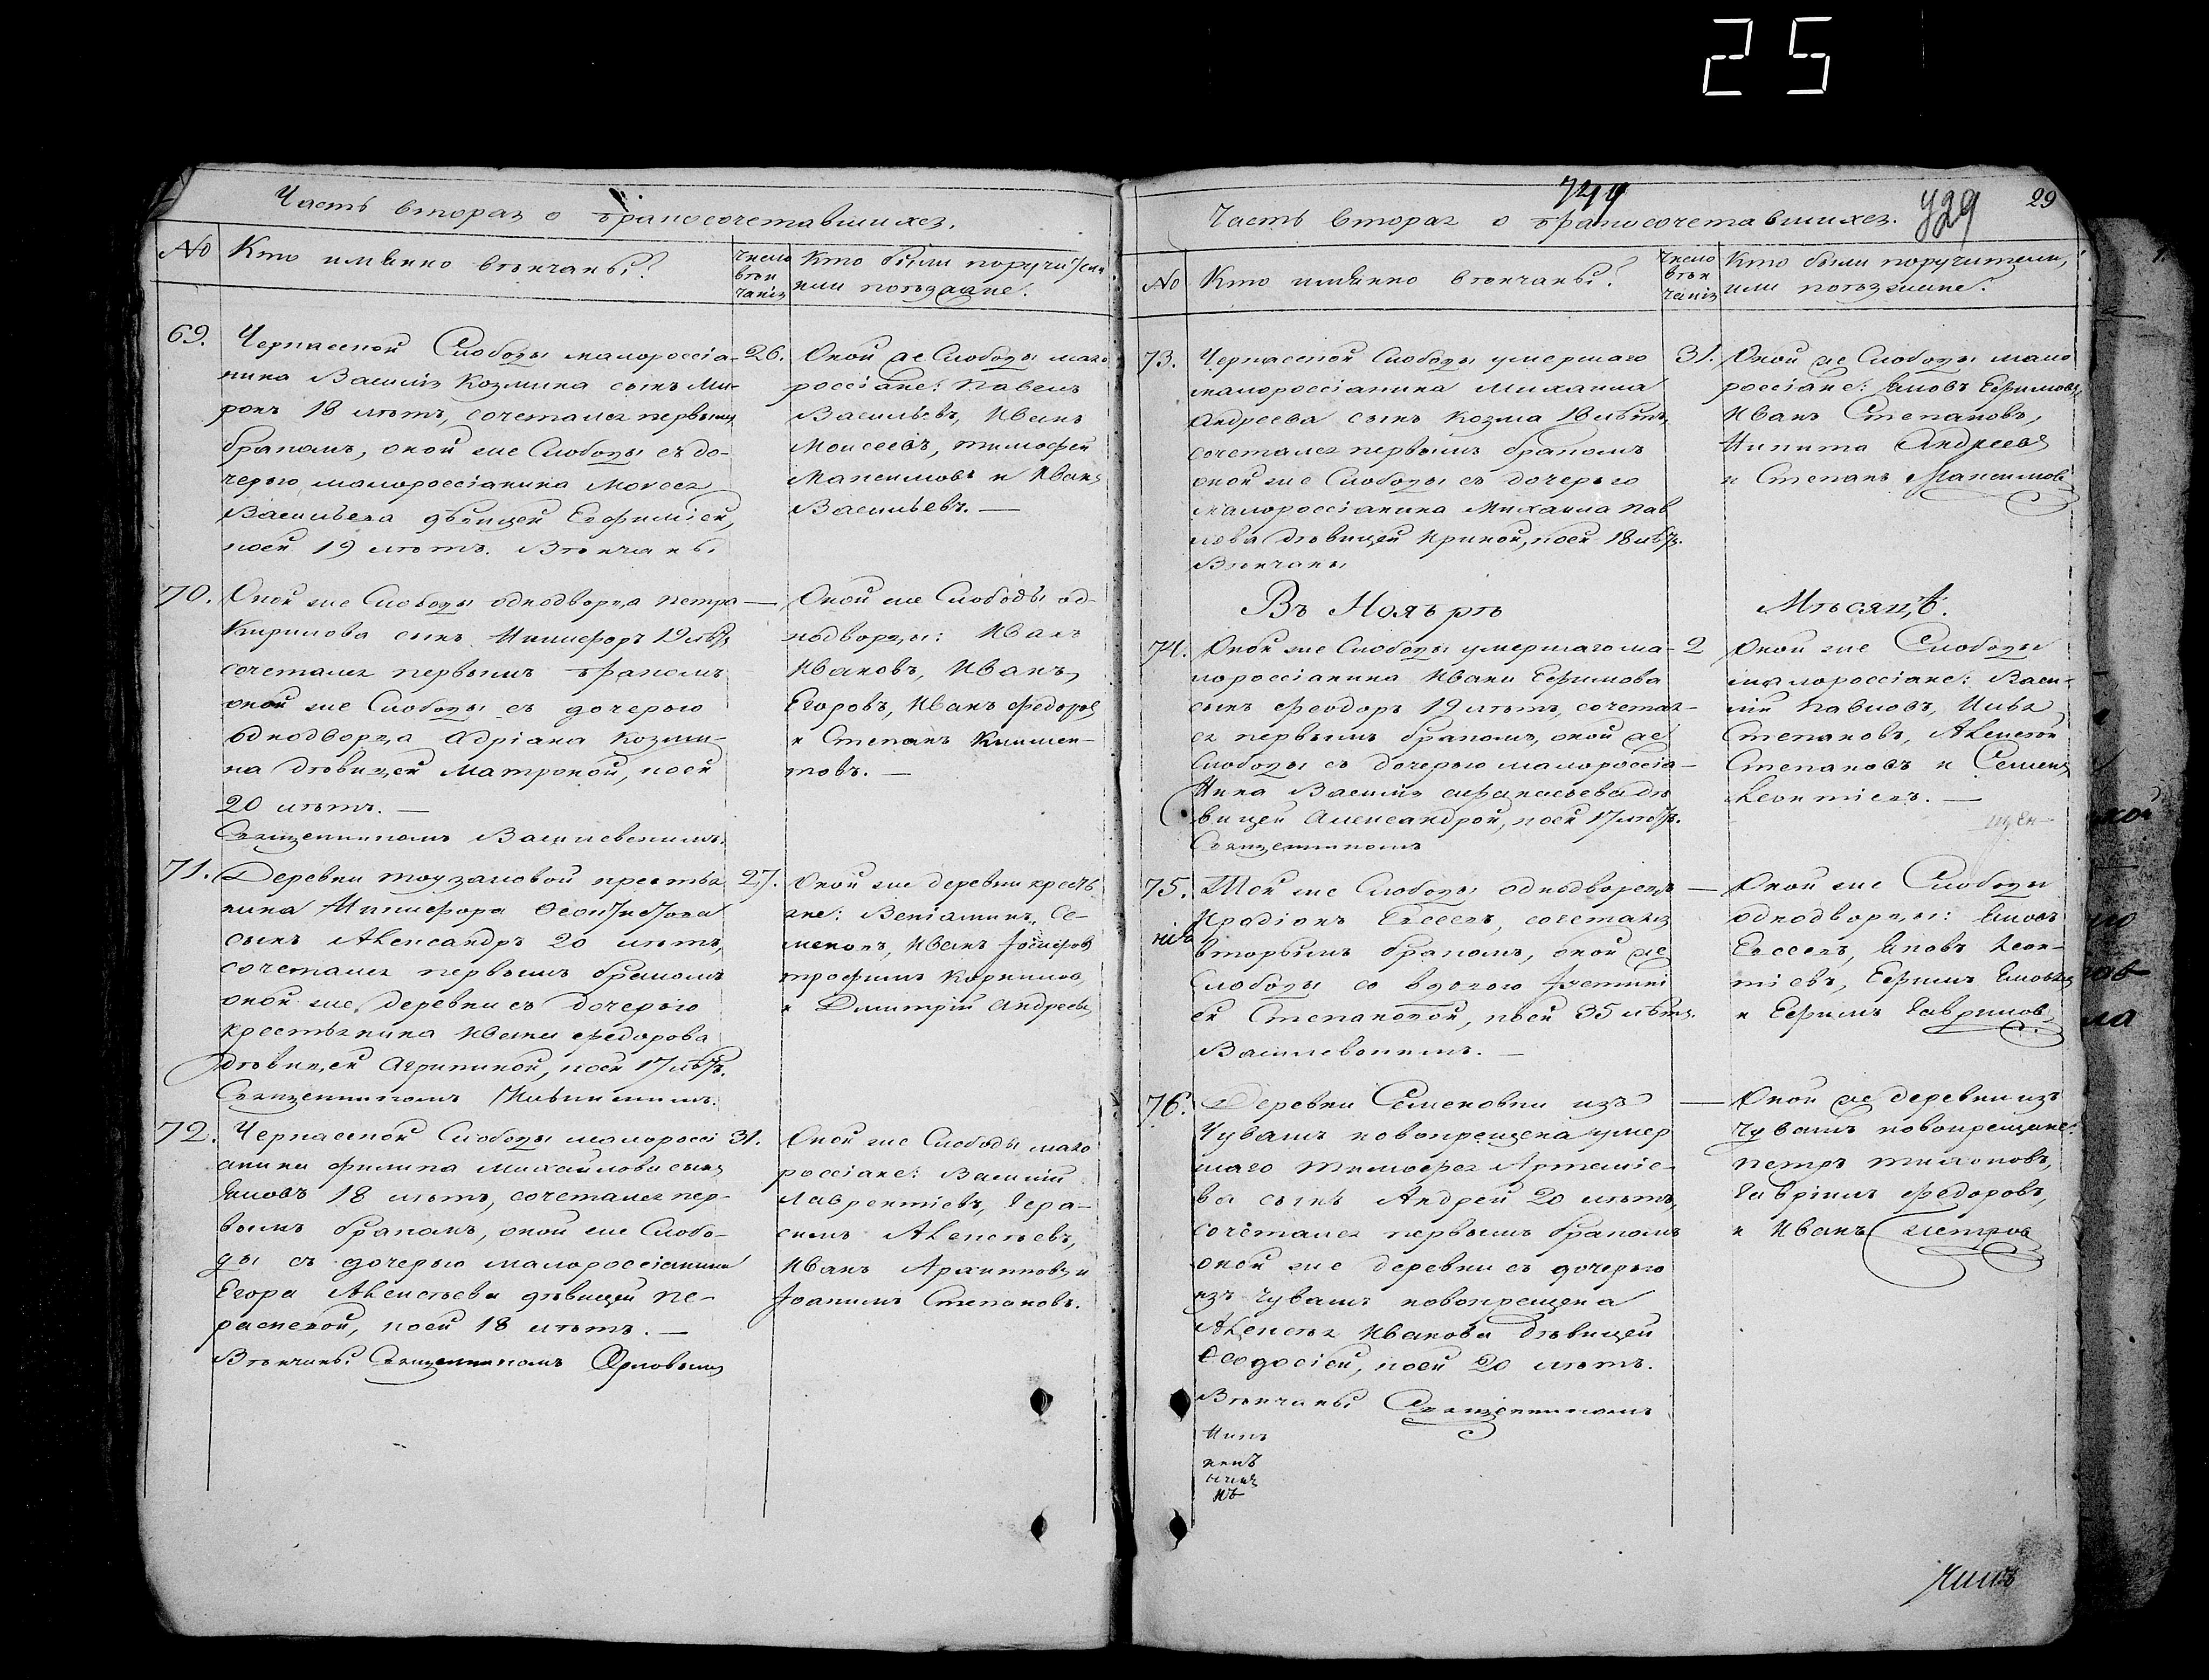 25
Часть вторая о бракосочетавшихся.
No
Кто имянно венчаны?
число
вѣн
чанія
Кто были поручители
или поѣзжане.
69.
Черкасской Слободы малороссія-
нина Василія Козмина сынъ Ми-
ронъ 18 лѣтъ, сочетался первымъ
бракомъ, оной же Слободы съ до-
черью малороссіянина Моисея
Васильева дѣвицей Евфиміей,
коей 19 лѣтъ. Вѣнчаны
26.
Оной же Слободы мало
россіяне: Павелъ
Васильевъ, Иванъ
Моисеевъ, Тимофей
Максимовъ и Иванъ
Васильевъ. —
70.
Оной же Слободы однодворца Петра
Кирилова сынъ Никифоръ 19 лѣтъ
сочетался первымъ бракомъ
оной же Слободы съ дочерью
однодворца Адріана Козми-
на дѣвицей Матроной, коей
20 лѣтъ. —
Священникомъ Василевскимъ.
—
Оной же Слободы од-
нодворцы: Иванъ
Ивановъ, Иванъ
Егоровъ, Иванъ Федоровъ
и Степанъ Климен-
товъ. —
71.
Деревни Тоузаковой крестья
нина Никифора
сынъ Александръ 20 лѣтъ,
сочетался первымъ бракомъ
оной же деревни съ дочерью
крестьянина Ивана Федорова
дѣвицей Агрипиной, коей 17 лѣтъ.
Священникомъ
27.
Оной же деревни кресть
яне: Веніаминъ Се-
меновъ, Иванъ
Трофимъ Корниловъ,
и Димитрій Андреевъ
72.
Черкасской Слободы малороссі
янина Филипа Михайлова сынъ
Яковъ 18 лѣтъ, сочетался пер-
вымъ бракомъ, оной же Слобо-
ды съ дочерью малороссіянина
Егора Алексѣева дѣвицей Па-
раскевой, коей 18 лѣтъ. —
Вѣнчаны Священникомъ Орловымъ
31.
Оной же Слободы мало
россіяне: Василій
Лаврентіевъ, Гера-
симъ Алексѣевъ,
Иванъ Архиповъ и
Іоакимъ Степановъ.
744
729
29
Часть вторая о бракосочетавшихся.
No
Кто имянно вѣнчаны?
число
вѣн
чанія
Кто были поручители,
или поѣзжане.
73.
Черкасской Слободы умершаго
малороссіянина Михаила
Андреева сынъ Козма 18 лѣтъ,
сочетался первымъ бракомъ
оной же Слободы съ дочерью
малороссіянина Михаила Пав
лова дѣвицей Ириной, коей 18 лѣтъ.
Вѣнчаны
31.
Оной же Слободы мало
россіяне: Яковъ Ефимовъ,
Иванъ Степановъ,
Никита Андреевъ
и Степанъ Максимовъ
Въ Ноябрѣ
Мѣсяцѣ.
74.
Оной же Слободы умершаго ма-
лороссіянина Ивана Ефимова
сынъ Феодоръ 19 лѣтъ, сочетал-
ся первымъ бракомъ, оной же
Слободы съ дочерью малороссія-
нина Василія Афанасьева дѣ
вицей Александрой, коей 17 лѣтъ.
Священникомъ
2
Оной же Слободы
малороссіяне: Васи-
лій Павловъ, Илья
Степановъ, Алексѣй
Степановъ и Семенъ
Леонтіевъ. —
75.
Той же Слободы однодворецъ
Иродіонъ Евсеевъ, сочетался
вторымъ бракомъ, оной же
Слободы со вдовою
ей Степановой, коей 35 лѣтъ.
Василевскимъ. —
—
Оной же Слободы
однодворцы: Яковъ
Евсеевъ, Яковъ Леон-
тіевъ, Ефимъ Яковлевъ
и Ефимъ Гавриловъ
76.
Деревни Семеновки изъ
Чувашъ новокрещена умер
шаго Тимофея Артеміе-
ва сынъ Андрей 20 лѣтъ,
сочетался первымъ бракомъ
оной же деревни съ дочерью
изъ Чувашъ новокрещена
Алексѣя Иванова дѣвицей
Феодосіей, коей 20 лѣтъ.
Вѣнчаны Священникомъ
—
Оной же деревни изъ
Чувашъ новокрещане:
Петръ Тихоновъ,
Гавріилъ Федоровъ,
и Иванъ Петровъ